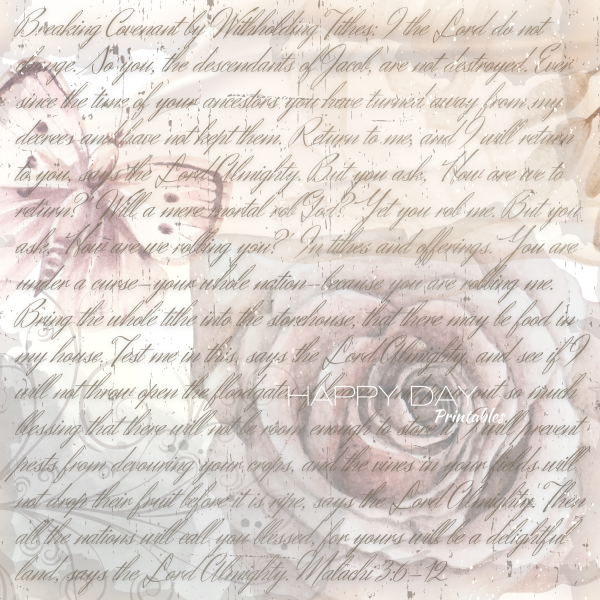 Breaking Covenant by Withholding Tithes: I the Lord do not
change. So you, the descendants of Jacob, are not destroyed. Ever
since the time of your ancestors you have turned away from my
decrees and have not kept them. Return to me, and I will return
to you, says the Lord Almighty. But you ask, 'How are we to
return?' Will a mere mortal rob God? Yet you rob me. But you
ask, 'How are we robbing you?' In tithes and offerings. You are
under a curse—your whole nation—because you are robbing me.
Bring the whole tithe into the storehouse, that there may be food in
my house. Test me in this, says the Lord Almighty, and see if I
will not throw open the floodgates out so much
HAPPY DAY
Printables
blessing that there will not be room enough to store will prevent
pests from devouring your crops, and the vines in your fields will
not drop their fruit before it is ripe, says the Lord Almighty. Then
all the nations will call you blessed, for yours will be a delightful
land, says the Lord Almighty. Malachi 3:6-12